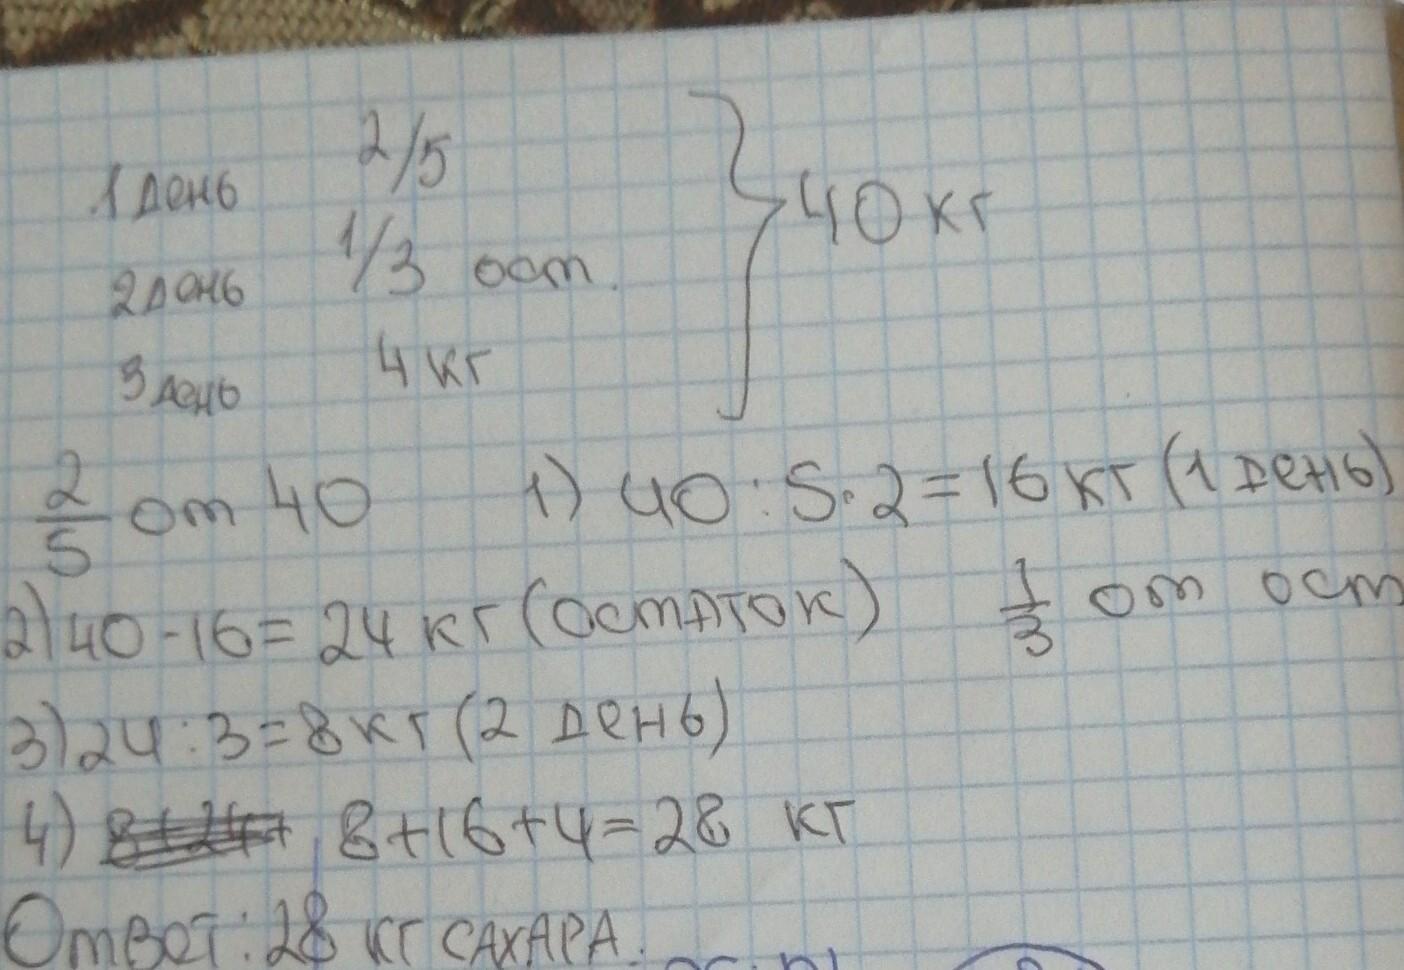 1 день 2/5
2 день 1/3 ост.
3 день 4 кг
40 кг
2/5 от 40 1) 40 : 5 · 2 = 16 кг (1 день)
2) 40 - 16 = 24 кг (остаток) 1/3 от ост
3) 24 : 3 = 8 кг (2 день)
4) 8 + 16 + 4 = 28 кг
Ответ: 28 кг сахара.